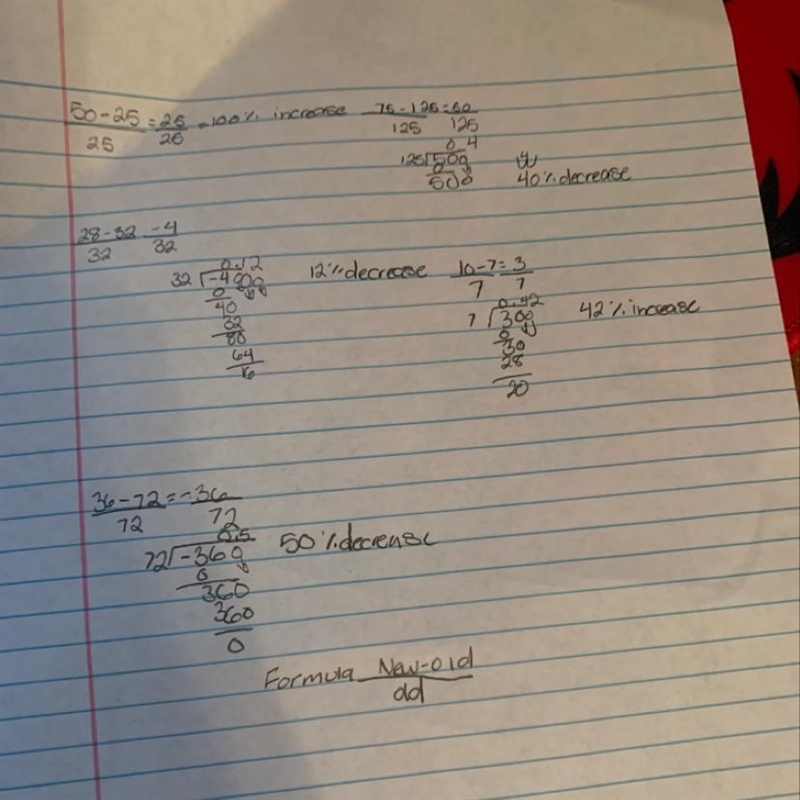 50-25 = 25 = 100% increase
25 25
75-125=50
125 125
0.4
125)500
0
500
40% decrease
28-32 -4
32 32
0.12
32)-400
0
40
32
80
64
16
12% decrease
10-7=3
7 7
0.42
7)300
0
30
28
20
42% increase
36-72=-36
72 72
0.5
72)-360
0
360
360
0
50% decrease
Formula New-old
old